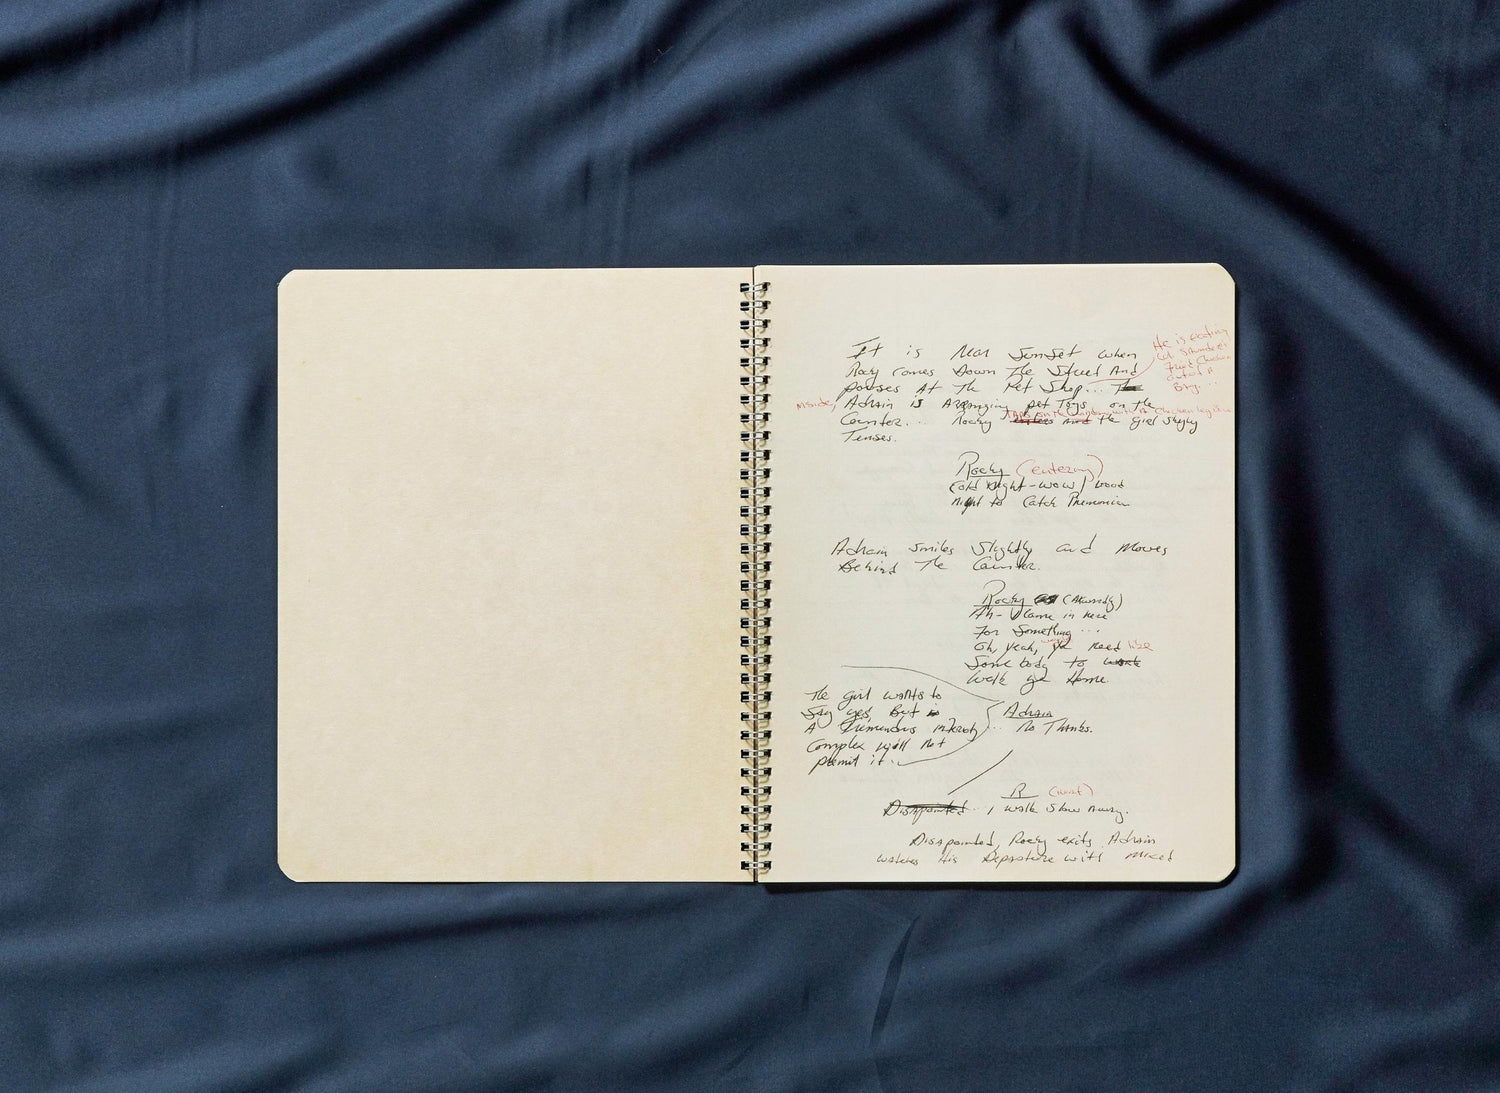 It is Near Sunset when
Rocky comes Down The Street And
pauses At The Pet Shop...
He is eating
Fried Chicken
out of A
Bag...
inside, Adrain is Arranging pet Toys on the
Counter... Rocky enters and the girl shyly
Taps on the window with A Chicken leg
Tenses.
Rocky (entering)
Cold Night - wow / Good
night to Catch Pneumonia
Adrain smiles Slightly and Moves
Behind The Counter.
Rocky (Akwardly)
Ah - I came in here
For Something ...
Oh, yeah, ya need like
Somebody to
walk ya Home.
The girl wants to
Say yes, But
A Tremendous
Complex will not
permit it..
Adrain
... No Thanks.
R
Disappointed .. I walk slow Away.
Disappointed, Rocky exits. Adrain
watches His Departure with mixed